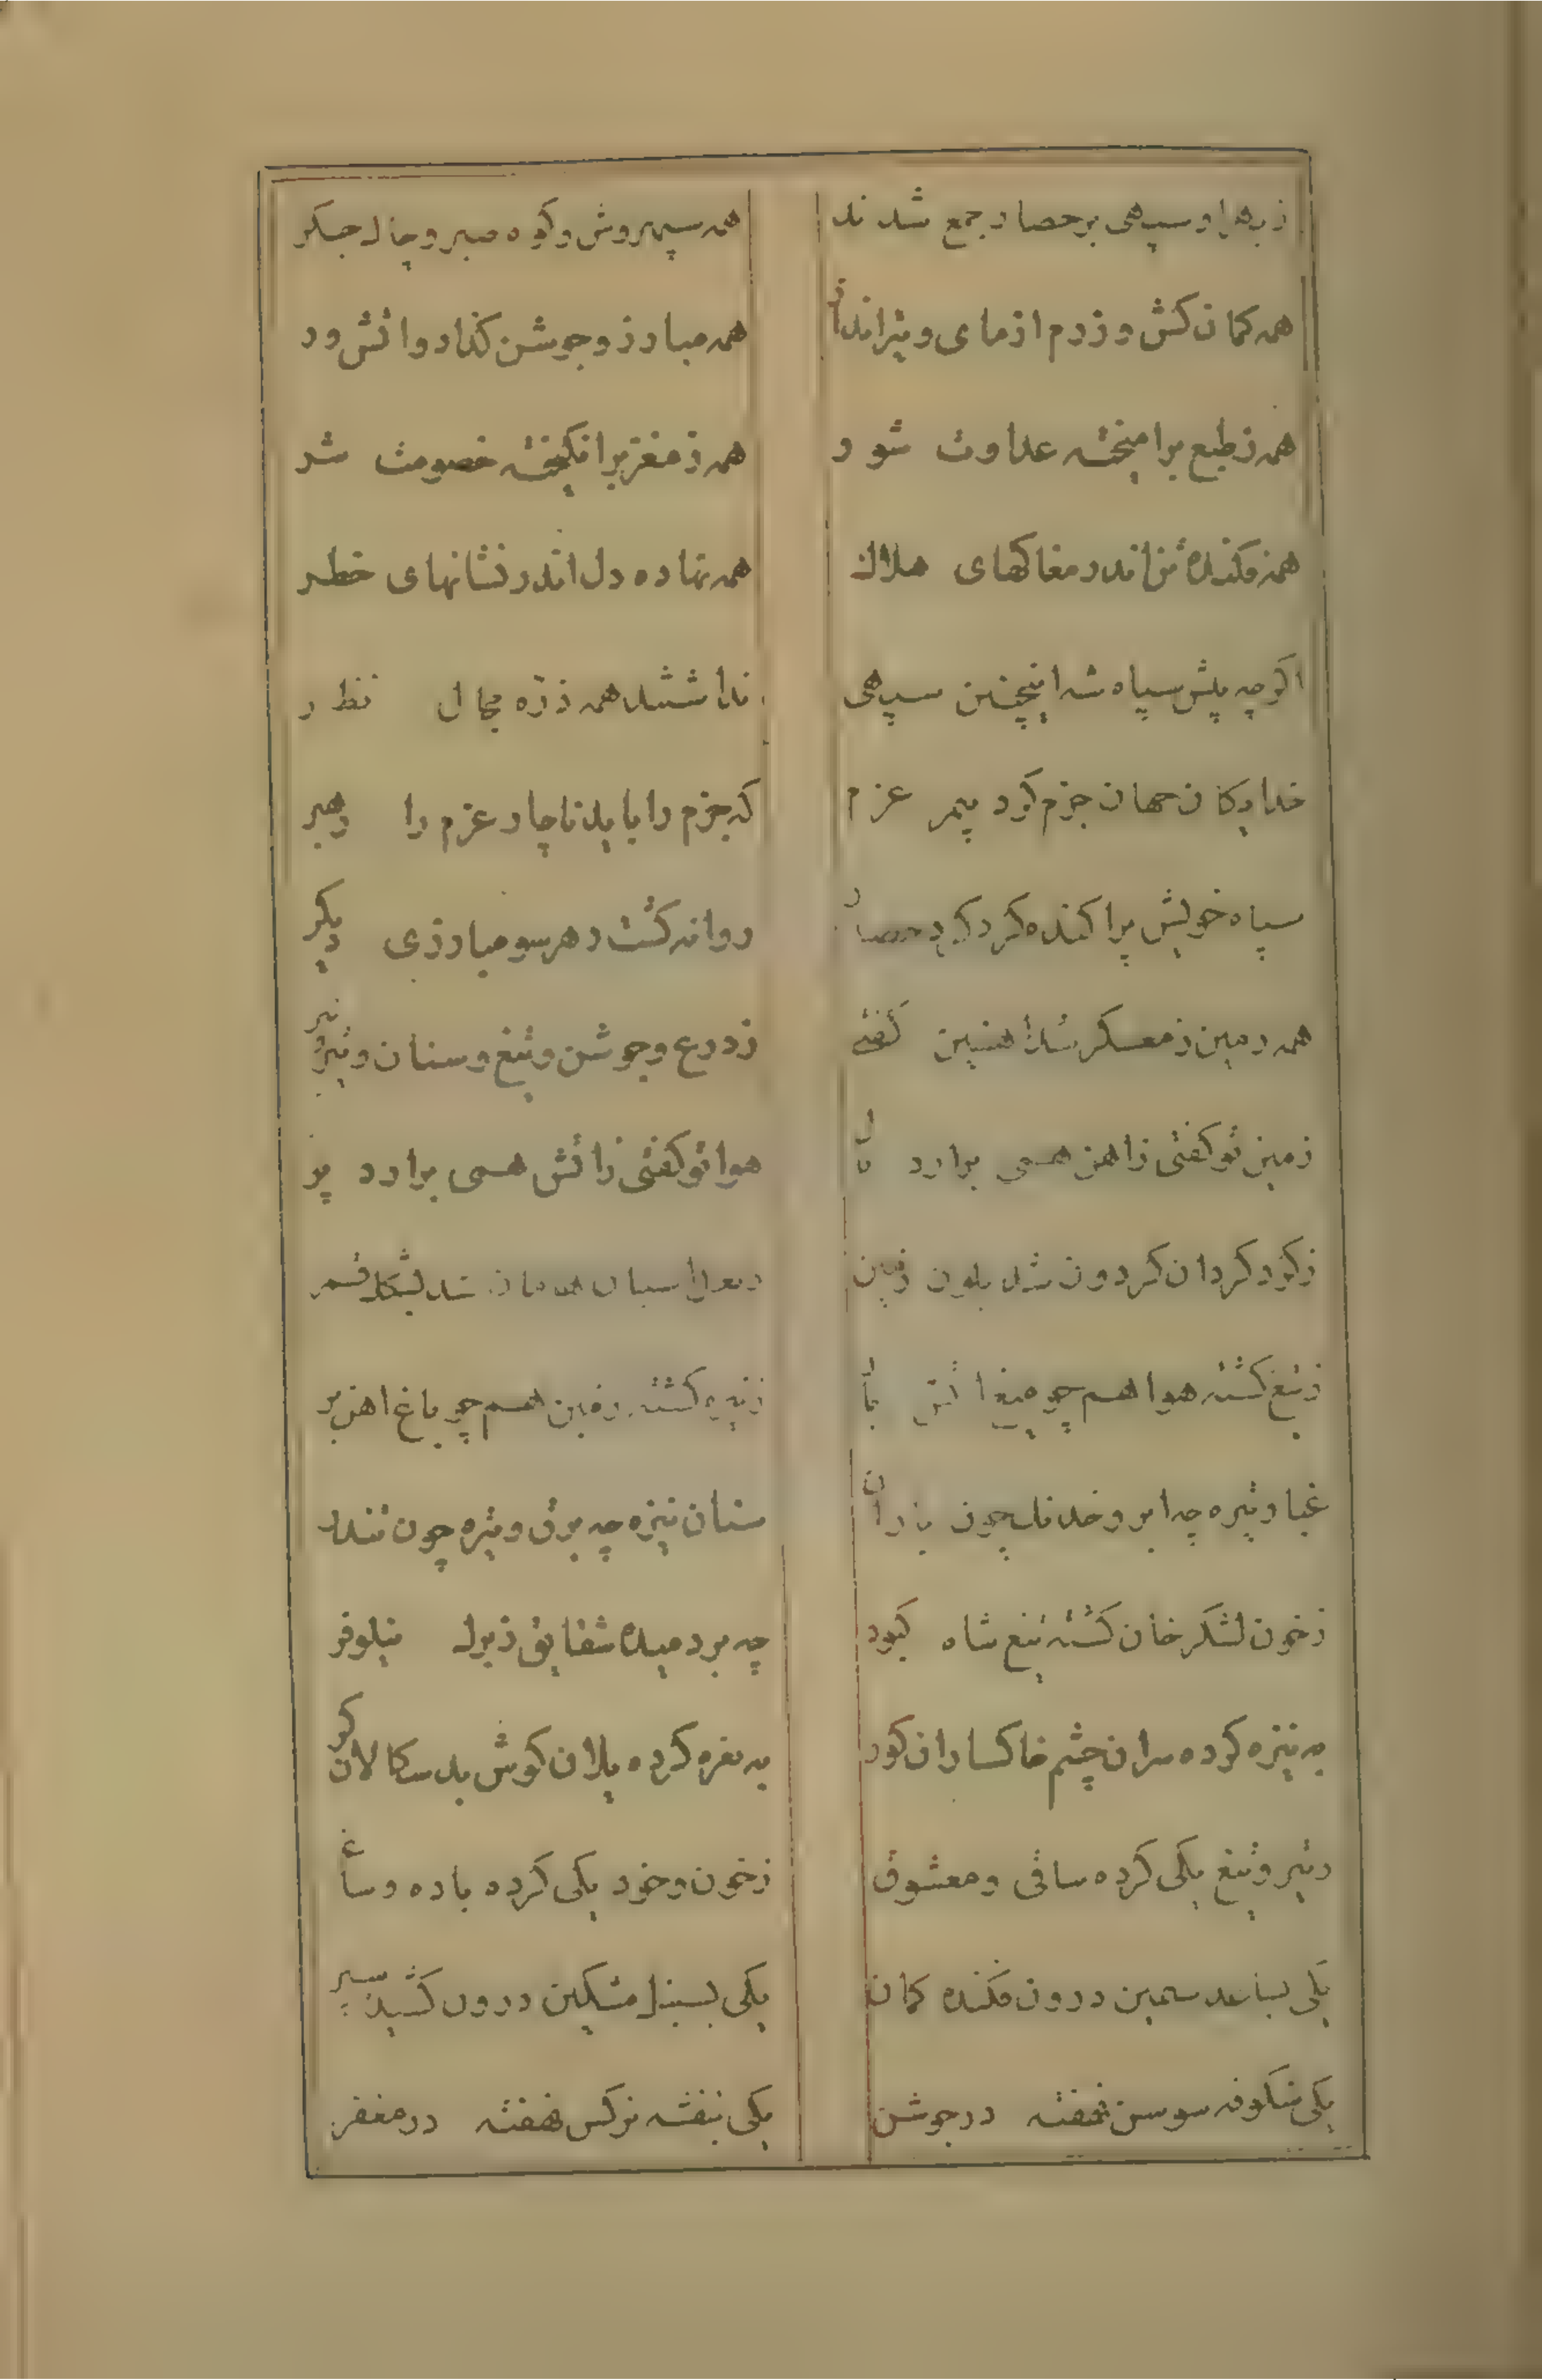 ز بهر او سپهی بر حصار جمع شدند همه سپهروش و کوه صبر و جکر
همه کمان کش و رزم ازمای و تیرانداز همه مبارز و جوشن کذار و اتش ور
همه ز طبع برامیخته عداوت شور همه ز مغز برانکیخته خصومت شر
همه فکنده تن اندر مغاکهای هلاک همه نهاده دل اندر نشانهای خطر
اکرچه پیش سپاه شه اینچنین سپهی نداشتند همه ذره مجال نظر
خدایکان جهان جزم کرد بهر عزم که جزم را باید ناچار عزم را رهبر
سپاه خویش پراکنده کرد کرد حصار روانه کشت ز هر سو مبارزی دیکر
همه زمین ز معسکر شد اهنین کفتی ز درع و جوشن و تیغ و سنان و تیر و تبر
زمین تو کفتی ز اهن همی برارد بال هوا تو کفتی ز اتش همی برارد پر
ز کرد کردان کردون شد بلون زمین شد بشکل قمر
ز تیغ کشته هوا هم چو میغ اتش بار ز نیزه کشته زمین هم چو باغ اهن بر
غبار تیره چه ابر و خدنک چون باران سنان نیزه چه برق و تیره چون تندر
ز خون لشکر خان کشته تیغ شاه کبود چه بر دمیده شقایق ز برک نیلوفر
به نیزه کرده سران چشم خاکساران کور به نعره کرده یلان کوش بدسکالان کر
ز تیر و تیغ یکی کرده ساقی و معشوق ز خون و خود یکی کرده باده و ساغر
یکی بساعد سیمین درون فکنده کمان یکی بسنبل مشکین درون کشیده سپر
یکی شکوفه سوسن نهفته در جوشن یکی بنفشه نرکس نهفته در مغفر